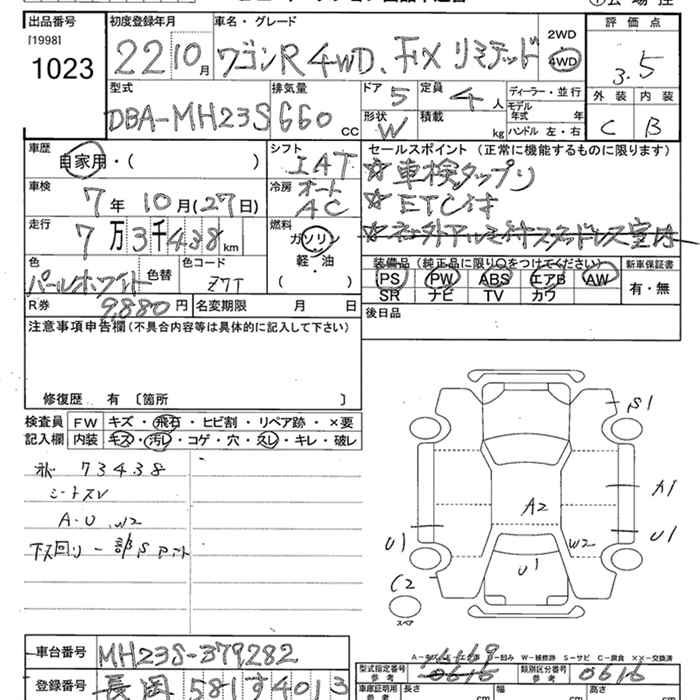 出品番号 初度登録年月 車名・グレード 評価点
[1998] 1023 22 10月 ワゴンR 4WD. FX リミテッド 2WD 4WD 3.5
型式 排気量 ドア 5 定員 4人 ディーラー・並行 外装 内装
DBA-MH23S 660cc 形状 W 積載 kg モデル年式 年式 ハンドル 左・右 C B
車歴 自家用・( ) シフト IAT セールスポイント (正常に機能するものに限ります)
☆車検タップリ
車検 7年 10月(27日) 冷房 オート AC ☆ETC付
走行 7万3千438km 燃料 ガソリン 軽・油 ( )
色 パールホワイト 色替 色コード Z7T
装備品 (純正品に限り○をつけてください) 新車保証書
PS PW ABS エアB AW 有・無
SR ナビ TV カワ
R券 9,880円 名変期限 月 日 後日品
注意事項申告欄 (不具合内容等は具体的に記入して下さい)
修復歴 有 〔箇所 〕
検査員 FW キズ・飛石・ヒビ割・リペア跡・×要
記入欄 内装 キズ・汚レ・コゲ・穴・スレ・キレ・破レ
73438
シートスレ
A・U W2
下回り一部S
S1
A1
A2
U1
U1
W2
U1
C2
スペア
車台番号 MH23S-379282
型式指定番号 参考 類別区分番号 参考 0616
登録番号 長岡 581す4013 車庫証明用 参考 長さ cm 幅 cm 高さ cm